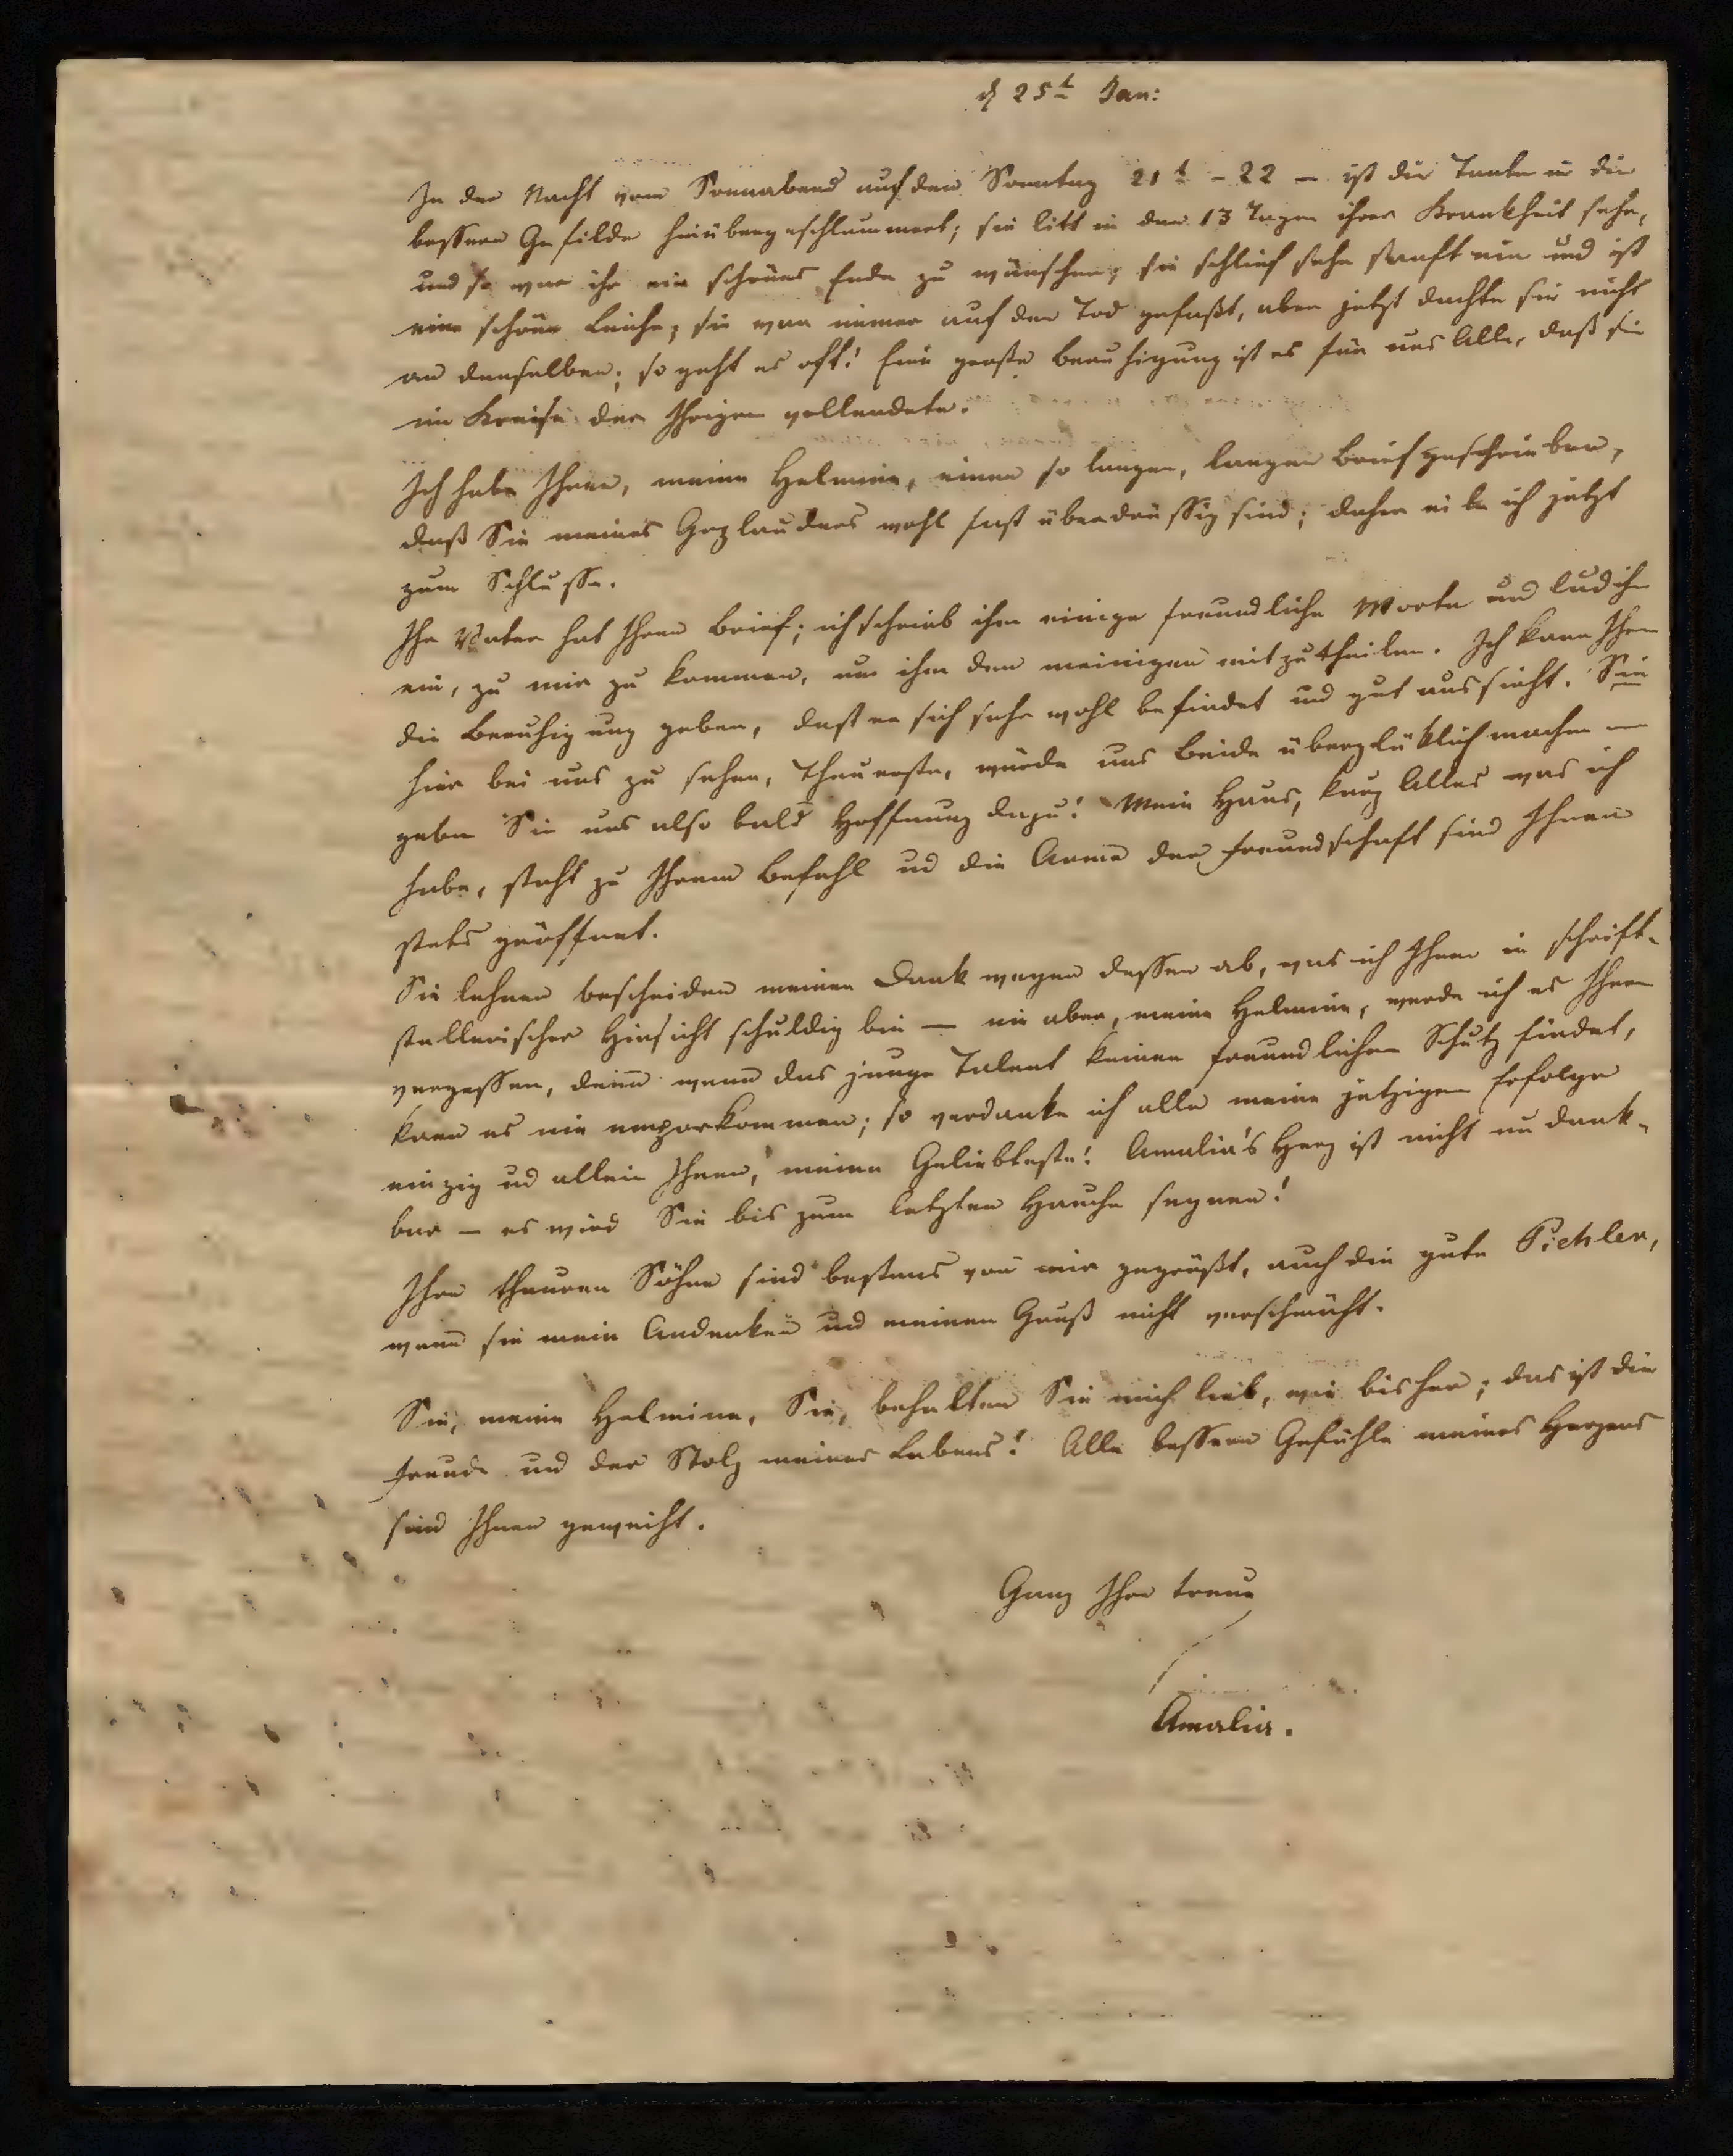 d 25t Jan:
In der Nacht vom Sonnabend auf den Sonntag 21t - 22 - ist die Tante in die
bessern Gefilde hinübergeschlummert; sie litt in den 13 Tagen ihrer Krankheit sehr,
und so war ihr ein schönes Ende zu wünschen; sie schlief sehr sanft ein und ist
eine schöne Leiche; sie war immer auf den Tod gefaßt, aber jetzt dachte sie nicht
an denselben; so geht es oft! Eine große Beruhigung ist es für uns Alle, daß sie
im Kreise der Ihrigen vollendete.
Ich habe Ihnen, meine Helmina, einen so langen, langen Brief geschrieben,
daß Sie meines Geplauders wohl fast überdrüssig sind; daher eile ich jetzt
zum Schlusse.
Ihr Vater hat Ihren Brief; ich schrieb ihm einige freundliche Worte und lud ihn
ein, zu mir zu kommen, um ihm den meinigen mitzutheilen. Ich kann Ihnen
die Beruhigung geben, daß er sich sehr wohl befindet und gut aussieht. Sie
hier bei uns zu sehen, Theuerste, würde uns Beide überglüklich machen —
geben Sie uns also bald Hoffnung dazu! Mein Haus, kurz Alles was ich
habe, steht zu Ihrem Befehl ud die Arme der Freundschaft sind Ihnen
stets geöffnet.
Sie lehnen bescheiden meinen Dank wegen dessen ab, was ich Ihnen in schrift-
stellerischer Hinsicht schuldig bin — nie aber, meine Helmina, werde ich es Ihnen
vergessen, denn wenn das junge Talent keinen freundlichen Schutz findet,
kann es nie emporkommen; so verdanke ich alle meine jetzigen Erfolge
einzig ud allein Ihnen, meine Geliebteste! Amalia's Herz ist nicht undank-
bar — es wird Sie bis zum letzten Hauche segnen!
Ihre theuren Söhne sind bestens von mir gegrüßt, auch die gute Pichler,
wenn sie mein Andenken und meinen Gruß nicht verschmäht.
Sie, meine Helmina, Sie, behalten Sie mich lieb, wie bisher; das ist die
Freude und der Stolz meines Lebens! Alle bessern Gefühle meines Herzens
sind Ihnen geweiht.
Ganz Ihre treue
Amalia.